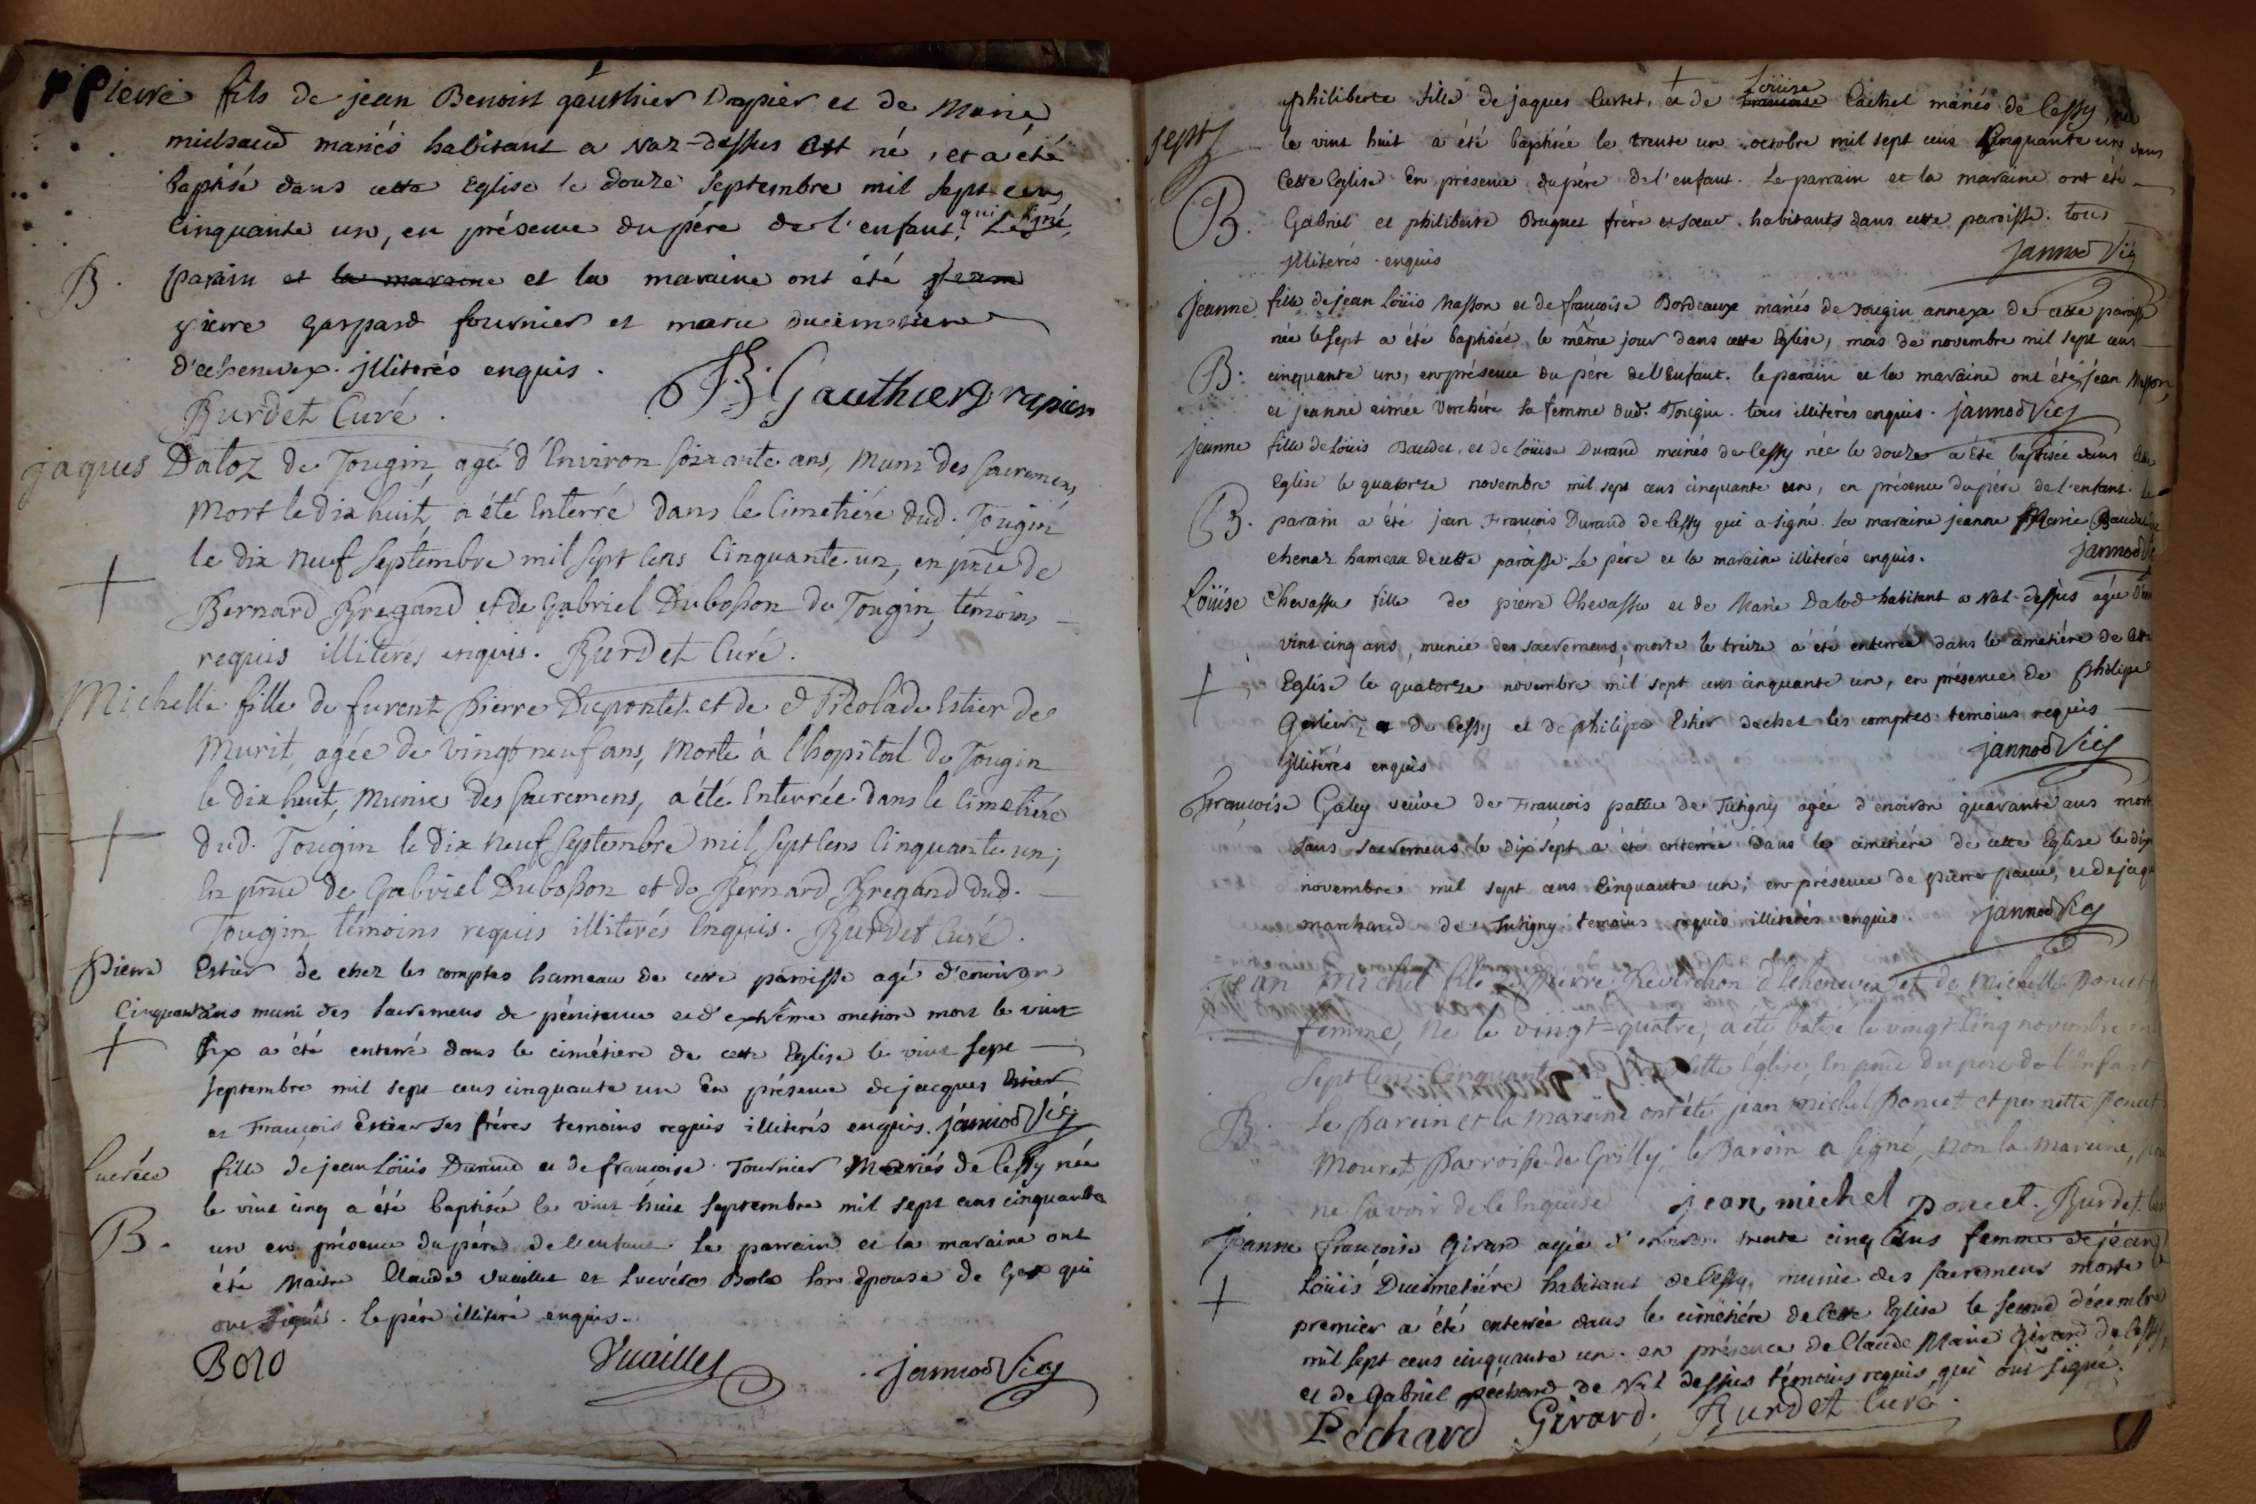 Pierre fils de jean Benoist gauthier Drapier et de Marie
michaud mariés habitant a Naz-dessus est né, et a été
baptisé dans cette Eglise le douze septembre mil sept cens
cinquante un, en présence du père de l'enfant, qui a signé, Le
B. parain et la maraine et la maraine ont été jean
pierre gaspard fournier et marie ducimetière
d'echenevex. jlliterés enquis.
Burdet Curé. JB. Gauthier Drapier
jaques Daloz de Tougin, agé d'Environ soixante ans, muni des sacremens,
mort le dix huit, a été Enterré dans le Cimetiére dud. Tougin
le dix neuf septembre mil sept cens Cinquante un, en pnce de
Bernard Bregand et de Gabriel Dubosson de Tougin, témoins
requis illiterés enquis. Burdet Curé.
Michelle fille de furent Pierre Dupontet et de Nicolade Estier de
Murit, agée de vingt neuf ans, morte à l'hopital de Tougin
le dix huit, Munie des sacremens, a été Enterrée dans le Cimetiére
dud. Tougin le dix neuf septembre mil sept cens Cinquante un;
En pnce de Gabriel Dubosson et de Bernard Bregand dud.
Tougin, témoins requis illiterés Enquis. Burdet Curé.
pierre Estier de chez les comptes hameau de cette paroisse agé d'environ
Cinquant'ans muni des sacremens de pénitence et d'extrême onction mort le vint
six a été enterré dans le cimétiere de cette Eglise le vint sept
septembre mil sept cens cinquante un En présence de jacques Estier
et François Estier ses fréres temoins requis illiterés enquis. jannod Vic
Lucréce fille de jean Loüis Durand et de françoise Tournier Mariés de Cessy née
le vint cinq a été baptisée le vint huit septembre mil sept cens cinquante
B. un en présence du pére de l'enfant. Le parrain et la maraine ont
été Maitre Claude vuaillet et Lucréce Bolo son épouse de Gex qui
ont signés. le pére illiteré enquis.
Bolo Vuaillet jannod Vic
philiberte fille de jaques Curtet, et de Loüise françoise Cachet mariés de Cessy, née
le vint huit a été baptisée le trente un octobre mil sept cens Cinquante un dans
Cette Eglise En présence du pére de l'enfant. Le parrain et la maraine ont été
B. Gabriel et philiberte Buguet frére et soeur habitants dans cette paroisse. tous
jlliterés enquis jannod Vic
jeanne fille de jean Loüis Masson et de françoise Bordeaux mariés de Tougin annexe de cette paroisse
née le sept a été baptisée le même jour dans cette Eglise, mois de novembre mil sept cens
B. cinquante un, en présence du pére de l'Enfant. le parain et la maraine ont été, jean Masson,
et jeanne aimée Verchére sa femme dud. Tougin. tous illiterés enquis. jannod Vic
jeanne fille de Loüis Baudet, et de Loüise Durand mariés de Cessy née le douze a été baptisée dans cette
Eglise le quatorze novembre mil sept cens cinquante un, en présence du pére de l'enfant. Le
B. parain a été jean François Durand de Cessy qui a signé. La maraine jeanne Marie
chenaz hameau de cette paroisse. Le pére et la maraine illiterés enquis. jannod Vic
Loüise Chevassu fille de pierre Chevassu et de Marie Dalod habitant a Naz-dessus agée
vint cinq ans, munie des sacremens, morte le treize a été enterrée dans le cimetiére de cette
Eglise le quatorze novembre mil sept cens cinquante un, en présence de philipe
de Cessy et de philipe Estier de chez les comptes temoins requis
jlliterés enquis jannod Vic
françoise Galey veüve de François de Tutigny agée d'environ quarante ans morte
sans sacremens le dix sept a été enterrée dans le cimetiére de cette Eglise le
novembre mil sept cens Cinquante un, en présence de pierre et de jaques
marchand de Tutigny temoins requis illiterés enquis. jannod Vic
jean michel fils de Pierre Reverchon d'Echenevex et de Michelle Poncet
femme, né le vingt-quatre, a eté batisé le vingt cinq novembre mil
sept cens Cinquante cette Eglise, En pnce du pere de l'Enfant
B. Le Parein et la Mareine ont été jean michel Poncet et pernette Poncet
Mouret, Parroisse de Grilly; le Parein a signé, non la mareine, pour
ne savoir de ce Enquise jean michel poncet. Burdet Curé
jeanne françoise Girard agée d'environ trente cinq ans femme de jean
Loüis Ducimetiére habitant de Cessy, munie des sacremens morte le
premier a été enterrée dans le cimétiére de Cette Eglise le second décembre
mil sept cens cinquante un. en présence de Claude Marie Girard de Cessy,
et de Gabriel péchard de Naz dessus témoins requis qui ont signé.
Péchard Girard. Burdet Curé.